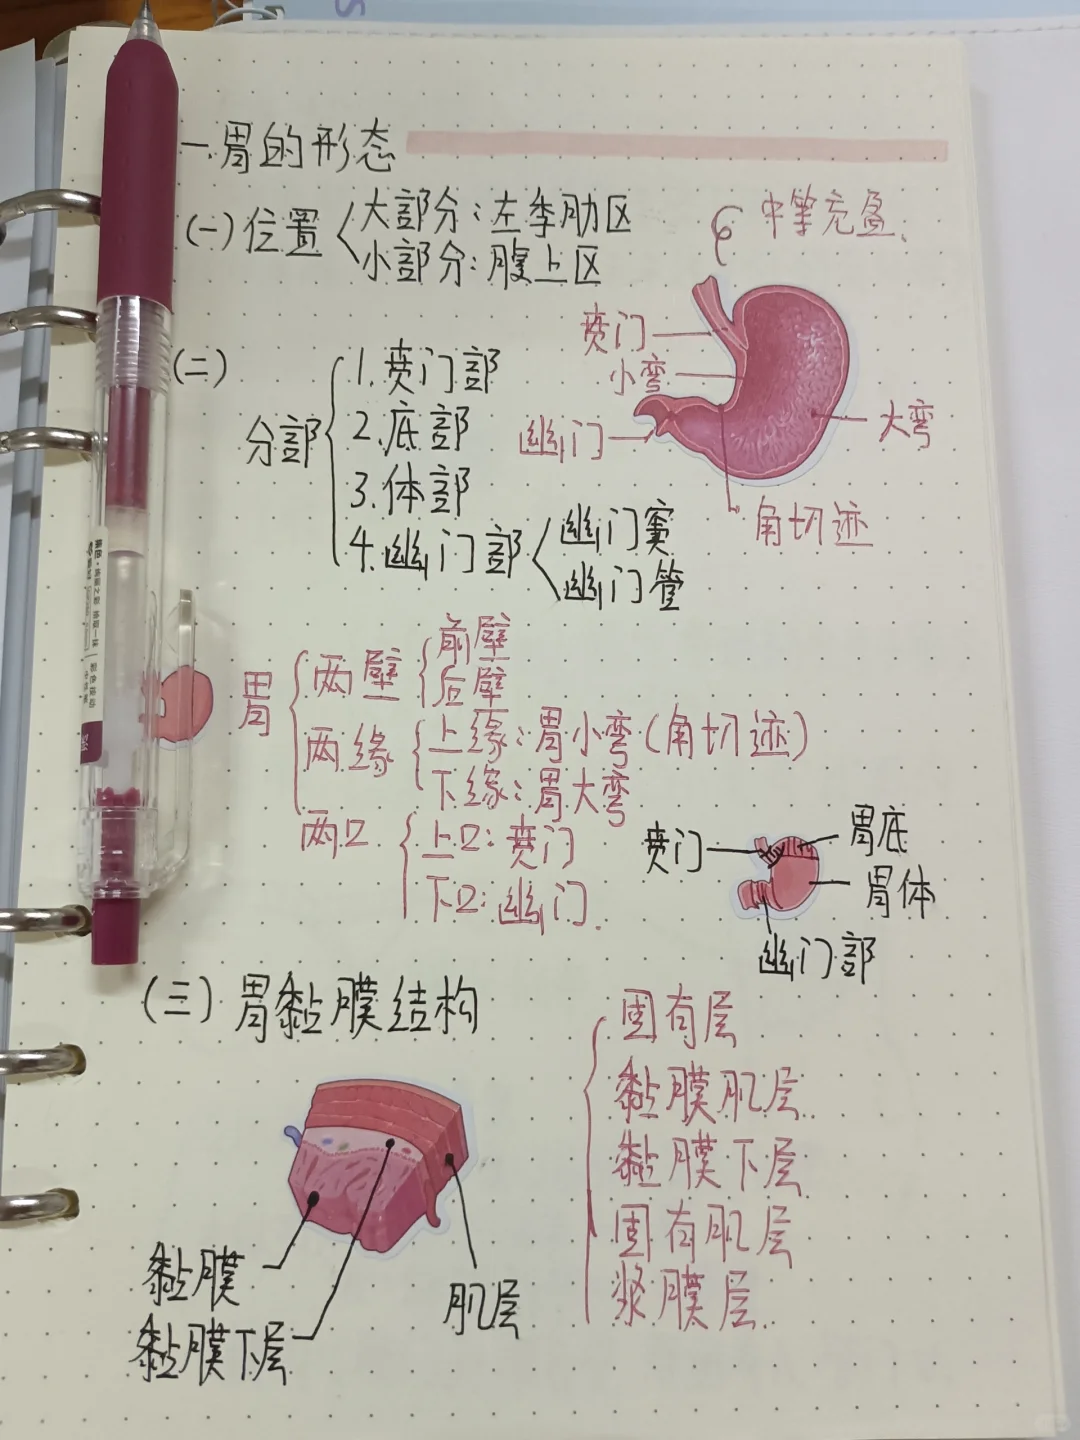 一.胃的形态
(一)位置
大部分:左季肋区
小部分:腹上区
中等充盈.
贲门
小弯
幽门
大弯
角切迹
(二)
分部
1.贲门部
2.底部
3.体部
4.幽门部
幽门窦
幽门管
胃
两壁
前壁
后壁
两缘
上缘:胃小弯(角切迹)
下缘:胃大弯
两口
上口:贲门
下口:幽门.
贲门
胃底
胃体
幽门部
(三)胃黏膜结构
固有层
黏膜肌层
黏膜下层
固有肌层
浆膜层
黏膜
黏膜下层
肌层